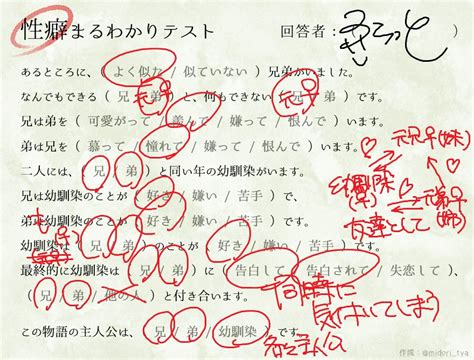 性癖まるわかりテスト 回答者：きらっと ）
あるところに、（ よく似た / 似ていない ）兄弟がいました。
なんでもできる（ 兄 / 弟 ）と、何もできない（ 兄 / 弟 ）です。
兄は弟を（ 可愛がって / 羨んで / 嫌って / 恨んで ）います。
弟は兄を（ 慕って / 憧れて / 嫌って / 恨んで ）います。
二人には、（ 兄 / 弟 ）と同い年の幼馴染がいます。
兄は幼馴染のことが（ 好き / 嫌い / 苦手 ）で、
弟は幼馴染のことが（ 好き / 嫌い / 苦手 ）です。
幼馴染は（ 兄 / 弟 ）のことが（ 好き / 嫌い / 苦手 ）です。
最終的に幼馴染は（ 兄 / 弟 ）に（ 告白して / 告白されて / 失恋して ）、
（ 兄 / 弟 / 他の人 ）と付き合います。
この物語の主人公は、（ 兄 / 弟 / 幼馴染 ）です。
元兄(妹)
幼馴染
元弟(姉)
友達として
同時に
気付いてしまう
各々主人公
作成：@midori_tya